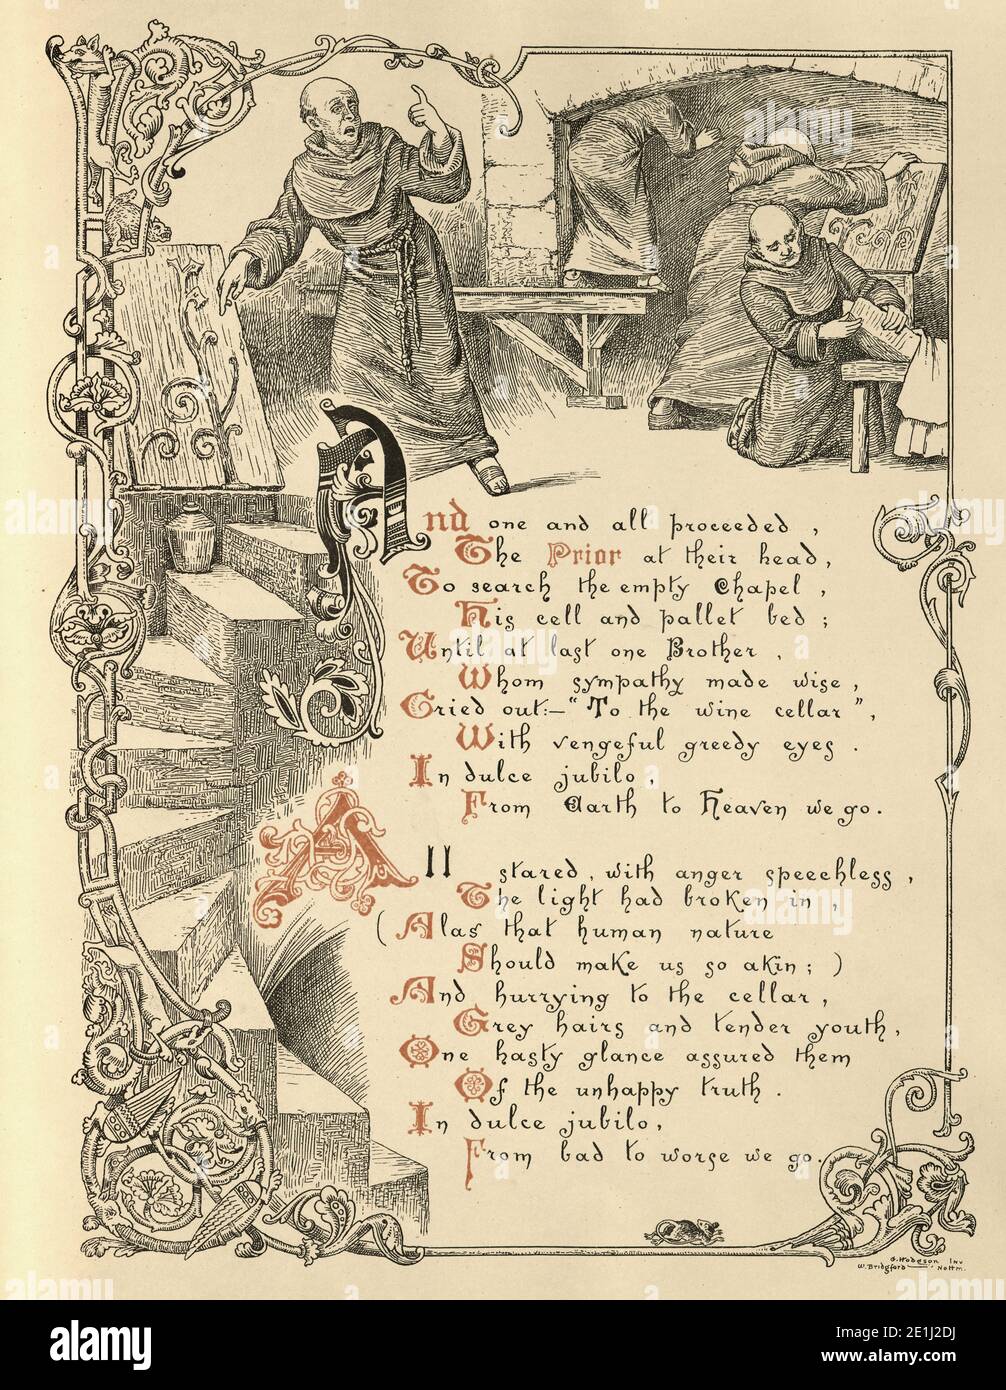 And one and all proceeded,
The Prior at their head,
To search the empty Chapel,
His cell and pallet bed;
Until at last one Brother,
Whom sympathy made wise,
Cried out:—"To the wine cellar",
With vengeful greedy eyes.
In dulce jubilo,
From Earth to Heaven we go.
All stared, with anger speechless,
The light had broken in,
(Alas that human nature
Should make us so akin;)
And hurrying to the cellar,
Grey hairs and tender youth,
One hasty glance assured them
Of the unhappy truth.
In dulce jubilo,
From bad to worse we go.
G. Hodgson Inv
W. Bridgford Nottm.
alamy
alamy
alamy
Image ID: 2E1J2DJ
www.alamy.com